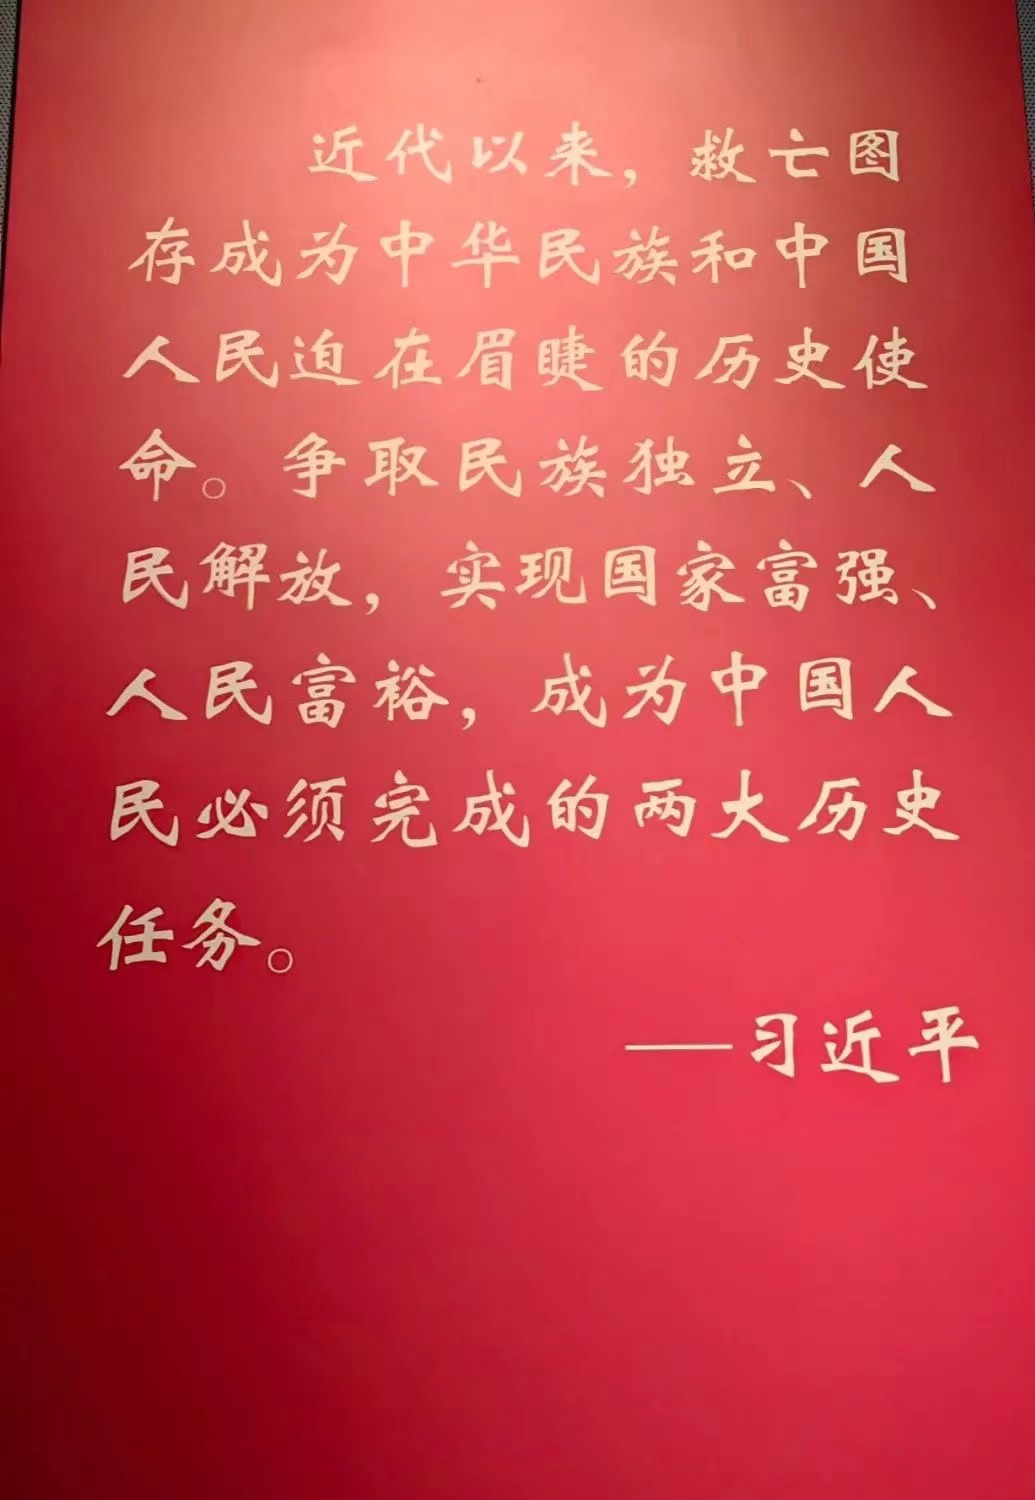 近代以来，救亡图
存成为中华民族和中国
人民迫在眉睫的历史使
命。争取民族独立、人
民解放，实现国家富强、
人民富裕，成为中国人
民必须完成的两大历史
任务。
——习近平